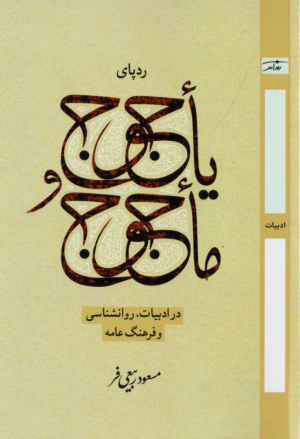 ردپای
یأجوج
و
مأجوج
در ادبیات، روانشناسی
و فرهنگ عامه
مسعود ربیعی فر
روزآمد
ادبیات